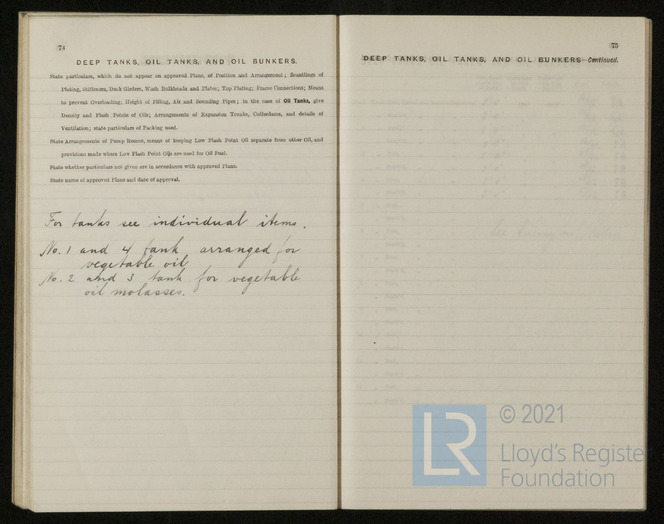 74
DEEP TANKS, OIL TANKS, AND OIL BUNKERS.
State particulars, which do not appear on approved Plans, of Position and Arrangement; Scantlings of
Plating, Stiffeners, Deck Girders, Wash Bulkheads and Plates; Top Plating; Frame Connections; Means
to prevent Overloading; Height of Filling, Air and Sounding Pipes; in the case of Oil Tanks, give
Density and Flash Points of Oils; Arrangements of Expansion Trunks, Cofferdams, and details of
Ventilation; state particulars of Packing used.
State Arrangements of Pump Rooms, means of keeping Low Flash Point Oil separate from other Oil, and
provisions made where Low Flash Point Oils are used for Oil Fuel.
State whether particulars not given are in accordance with approved Plans.
State name of approved Plans and date of approval.
For tanks see individual items.
No. 1 and 4 tank arranged for
vegetable oil
No. 2 and 3 tank for vegetable
oil molasses.
75
DEEP TANKS, OIL TANKS, AND OIL BUNKERS—Continued.
LR
© 2021
Lloyd's Register
Foundation